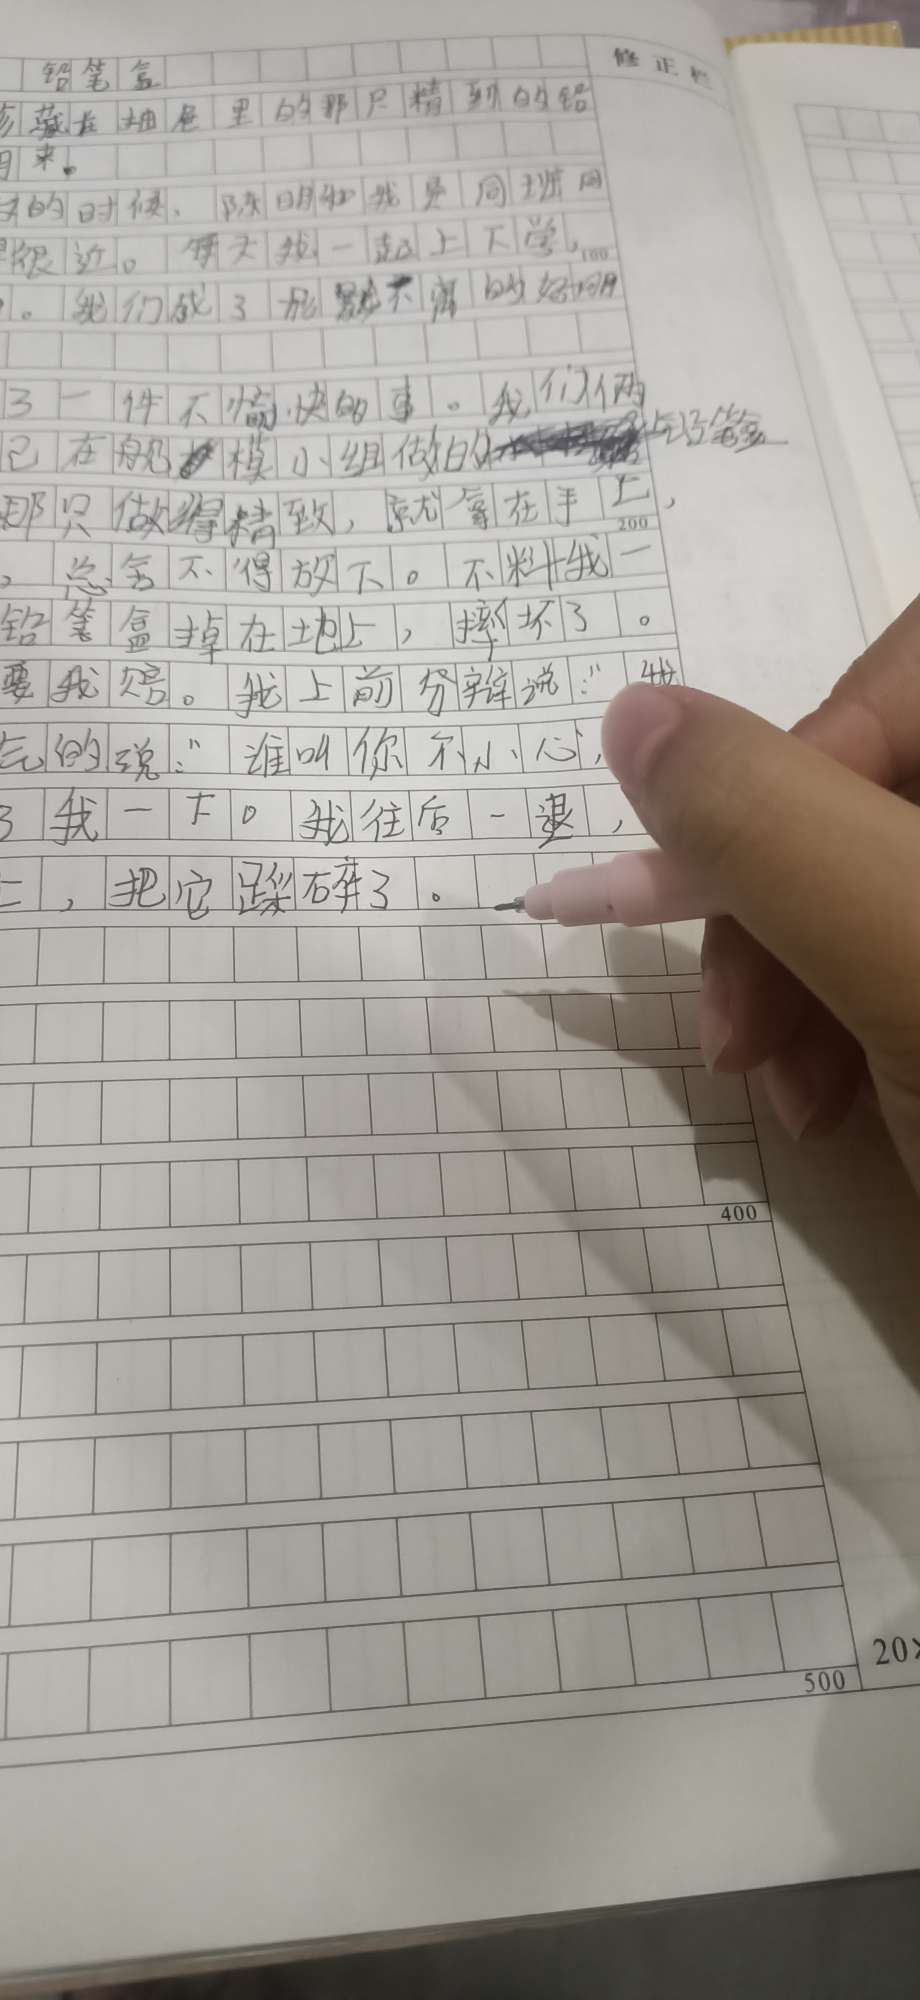 铅笔盒
修正栏
藏在抽屉里的那只精致的铅
来。
的时候、陈明和我是同班同
很近。每天我一起上下学,
100
。我们成了形影不离的好朋
了一件不愉快的事。我们俩
己在航模小组做的铅笔盒
那只做得精致,就拿在手上,
200
,总舍不得放下。不料我一
铅笔盒掉在地上,摔坏了。
要我赔。我上前分辩说:“我
气的说:“谁叫你不小心,
了我一下。我往后一退,
上,把它踩碎了。
400
500
20×